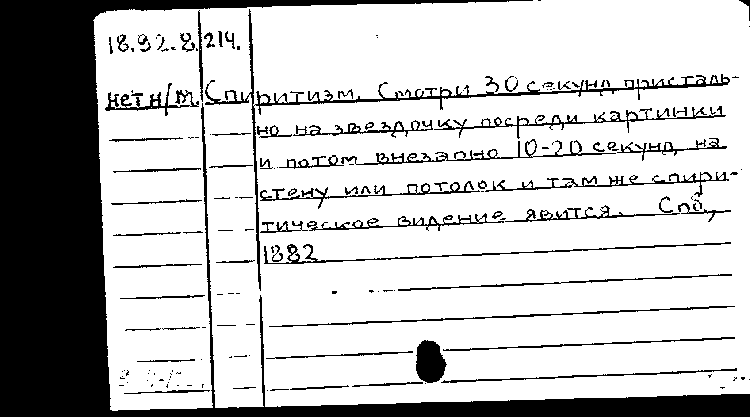 18.92.8.214.
нет н/т. Спиритизм. Смотри 30 секунд присталь-
но на звездочку посреди картинки
и потом внезапно 10-20 секунд на
стену или потолок и там же спири-
тическое видение явится. Спб,
1882